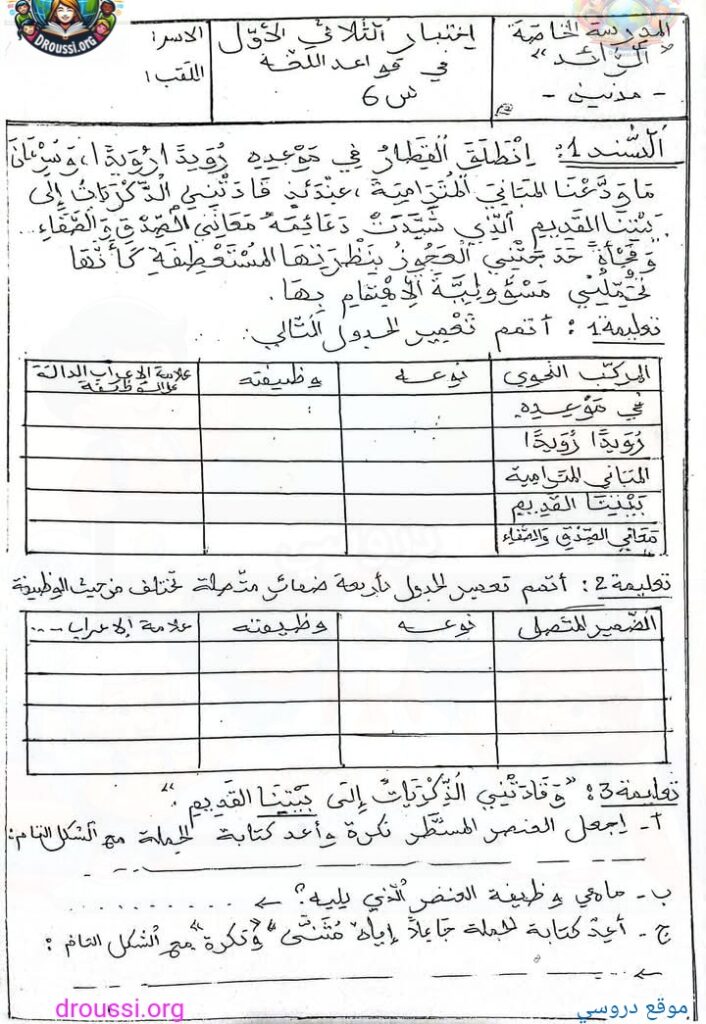 DROUSSI.org
المدرسة الخاصة
"الرائد"
- مدنين -
إختبار الثلاثي الأوّل
في قواعد اللغة
س 6
الاسم:
اللقب:
السند 1: اِنْطَلَقَ القِطَارُ فِي مَوْعِدِهِ رُوَيْدًا رُوَيْدًا، وَسُرْعَانَ
مَا وَدَّعْنَا المَبَانِيَ المُتَرَامِيَةَ، عِنْدَئِذٍ قَادَتْنِي الذِّكْرَيَاتُ إِلَى
بَيْتِنَا القَدِيمِ الَّذِي شَيَّدَتْ دَعَائِمَهُ مَعَانِي الصِّدْقِ وَالصَّفَاءِ..
وَفَجْأَةً حَدَجَتْنِي العَجُوزُ بِنَظْرَتِهَا المُسْتَعْطِفَةِ كَأَنَّهَا
تُحَمِّلُنِي مَسْؤُولِيَّةَ الاِهْتِمَامِ بِهَا.
تعليمة 1: أتمم تعمير الجدول التّالي:
المركّب النحوي | نوعه | وظيفته | علامة الإعراب الدالة على الوظيفة
في مَوْعِدِهِ
رُوَيْدًا رُوَيْدًا
المباني المتراميةَ
بَيْتِنَا القَدِيمِ
مَعَانِي الصِّدْقِ والصَّفَاءِ
تعليمة 2: أتمم تعمير الجدول بأربعة ضمائر متّصلة تختلف من حيث الوظيفة
الضّمير المتصل | نوعه | وظيفته | علامة الإعراب...
تعليمة 3: "وَقَادَتْنِي الذِّكْرَيَاتُ إِلَى بَيْتِنَا القَدِيمِ."
أ- اِجعل العنصر المسطّر نكرة وأعد كتابة الجملة مع الشكل التام:
ب- ماهي وظيفة العنصر الّذي يليه؟ ← ..........
ج- أعِدْ كتابة الجملة جَاعِلاً إيّاهُ مُثَنًّى "وَنكرة" مع الشكل التام:
←
droussi.org
موقع دروسي